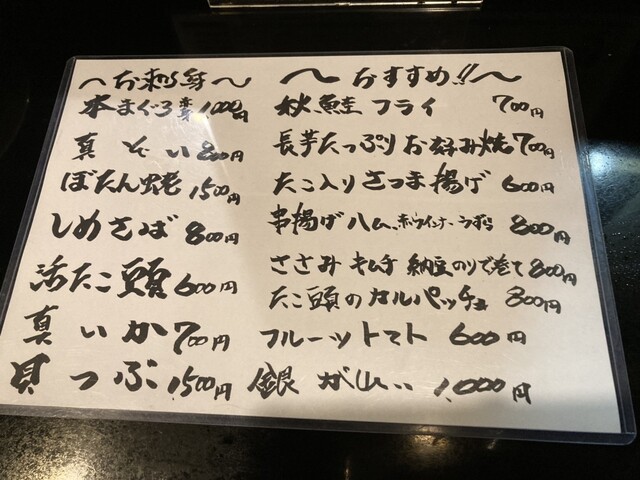 〜お刺身〜
本まぐろ赤身1000円
真そい800円
ぼたん蛯1500円
しめさば800円
活たこ頭600円
真いか700円
貝つぶ1500円
〜おすすめ!!〜
秋鮭フライ 700円
長芋たっぷりお好み焼700円
たこ入りさつま揚げ 600円
串揚げハム、赤ウインナー、うずら 800円
ささみキムチ納豆のりで巻て800円
たこ頭のカルパッチョ 800円
フルーツトマト 600円
銀がれい 1,000円